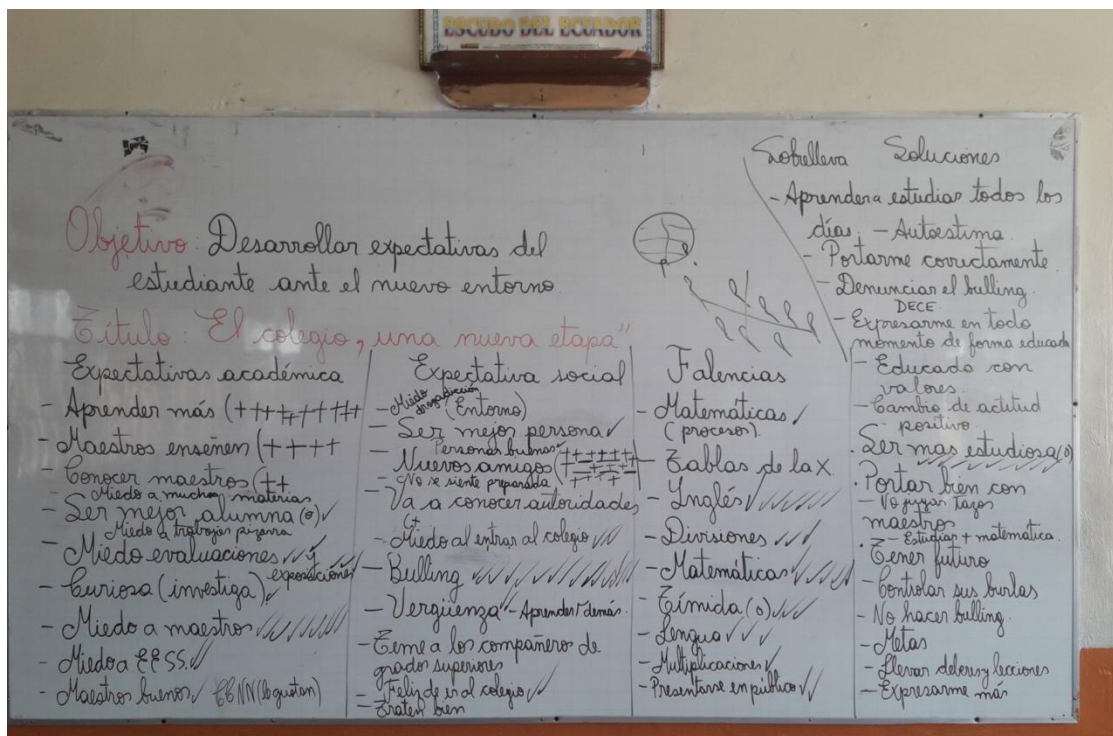 ESCUDO DEL ECUADOR
Objetivo: Desarrollar expectativas del
estudiante ante el nuevo entorno.
Título: El colegio, una nueva etapa"
Expectativas académica
- Aprender más (++++++++
- Maestros enseñen (++++
- Conocer maestros (++
- Miedo a muchas materias
- Ser mejor alumna (o) ✓
Miedo a trabajar pizarra
- Miedo evaluaciones ✓✓✓
exposiciones
- Curiosa (investiga) ✓
- Miedo a maestros
- Miedo a EESS. ✓
- Maestros buenos ✓ CCNN (le gustan)
Expectativa social
- Miedo (Entorno)
- Ser mejor persona ✓
Personas buenas ✓
- Nuevos amigos
- No se siente preparada
- Va a conocer autoridades
(+
- Miedo al entrar al colegio
- Bulling
- Vergüenza - Aprender demás.
- Teme a los compañeros de
grados superiores
- Feliz de ir al colegio ✓✓
- Traten bien
Falencias
- Matemáticas ✓
(procesos).
- Tablas de la X.
- Inglés
- Divisiones
- Matemáticas
- Tímida (o)
- Lengua ✓✓✓
- Multiplicaciones ✓
- Presentarse en público ✓✓
Sobrelleva Soluciones
- Aprender a estudiar todos los
días. - Autoestima.
- Portarme correctamente
- Denunciar el bulling.
DECE.
- Expresarme en todo
momento de forma educada
- Educado con
valores.
- Cambio de actitud
positivo.
. Ser mas estudiosa (o)
. Portar bien con
- No jugar tazos
maestros
- Estudiar + matematica.
. Tener futuro
- Controlar sus burlas
- No hacer bulling.
- Metas
- Llevar deberes y lecciones
- Expresarme más